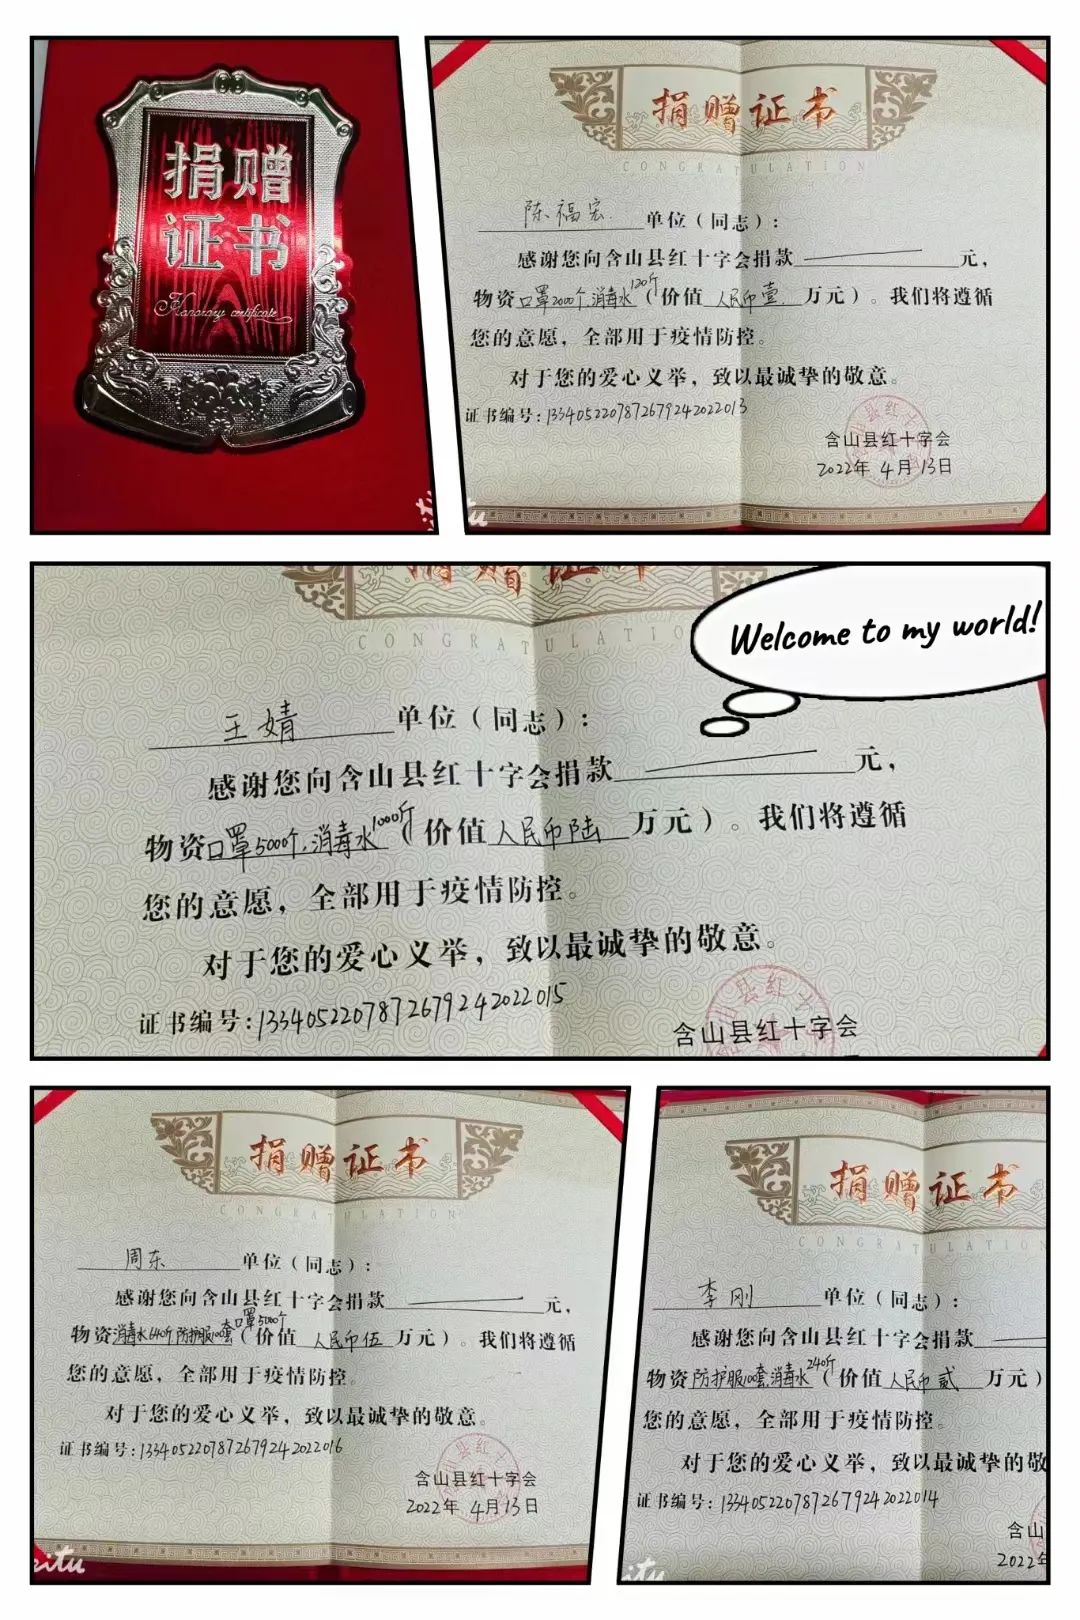 捐赠
证书
Honorary certificate
捐赠证书
CONGRATULATION
陈福宏 单位（同志）：
感谢您向含山县红十字会捐款 元，
物资口罩2000个,消毒水120斤（价值 人民币壹 万元）。我们将遵循
您的意愿，全部用于疫情防控。
对于您的爱心义举，致以最诚挚的敬意。
证书编号：1334052207872679242022013
含山县红十字会
2022年 4月13日
捐赠证书
CONGRATULATIO
Welcome to my world!
王婧 单位（同志）：
感谢您向含山县红十字会捐款 元，
物资口罩5000个,消毒水1000斤（价值人民币陆 万元）。我们将遵循
您的意愿，全部用于疫情防控。
对于您的爱心义举，致以最诚挚的敬意。
证书编号：1334052207872679242022015
含山县红十字会
捐赠证书
CONGRATULATION
周东 单位（同志）：
感谢您向含山县红十字会捐款 元，
物资消毒水640斤防护服100套口罩5000个（价值 人民币伍 万元）。我们将遵循
您的意愿，全部用于疫情防控。
对于您的爱心义举，致以最诚挚的敬意。
证书编号：1334052207872679242022016
含山县红十字会
2022年 4月13日
捐赠证书
CONGRATULATION
李刚 单位（同志）：
感谢您向含山县红十字会捐款
物资防护服100套消毒水240斤（价值人民币贰 万元）
您的意愿，全部用于疫情防控。
对于您的爱心义举，致以最诚挚的敬
证书编号：1334052207872679242022014
含山
2022年